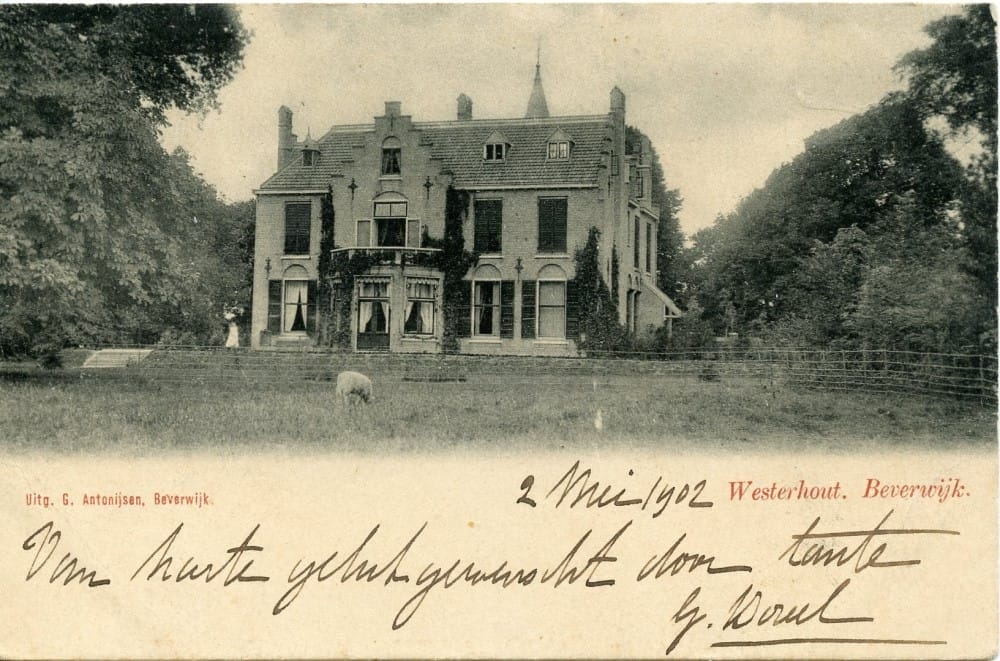 2 Mei 1902 Westerhout. Beverwijk.
Uitg. G. Antonijsen, Beverwijk.
Van harte geluk gewenscht door tante
G.